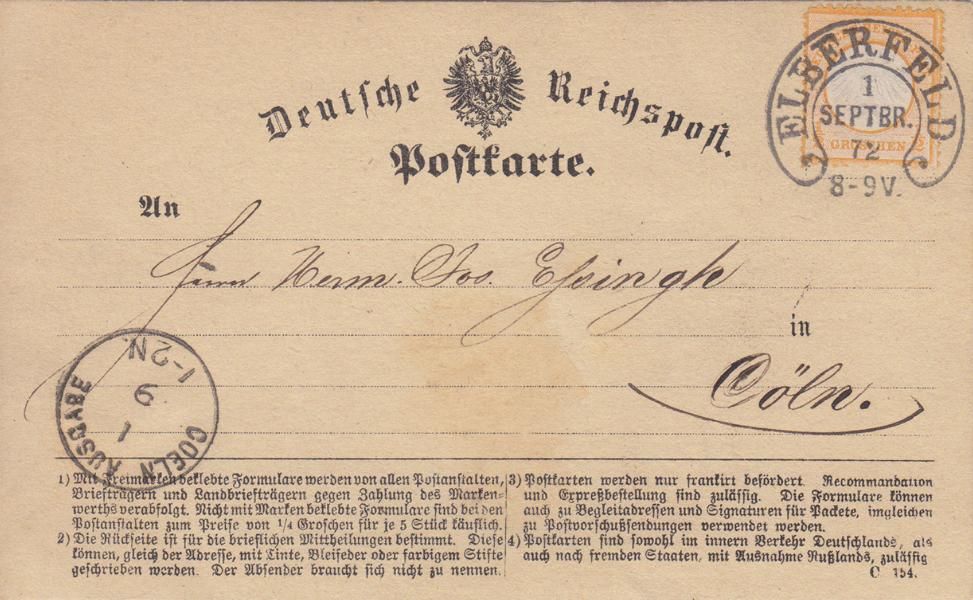 Deutsche Reichspost.
Postkarte.
ELBERFELD
1
SEPTBR.
72
8-9V.
GROSCHEN
An
Herrn Herm. Jos. Essingh
in
Cöln.
COELN AUSGABE
1
9
1-2N.
1) Mit Freimarken beklebte Formulare werden von allen Postanstalten,
Briefträgern und Landbriefträgern gegen Zahlung des Marken-
werths verabfolgt. Nicht mit Marken beklebte Formulare sind bei den
Postanstalten zum Preise von 1/4 Groschen für je 5 Stück käuflich.
2) Die Rückseite ist für die brieflichen Mittheilungen bestimmt. Diese
können, gleich der Adresse, mit Tinte, Bleifeder oder farbigem Stifte
geschrieben werden. Der Absender braucht sich nicht zu nennen.
3) Postkarten werden nur frankirt befördert. Recommandation
und Expreßbestellung sind zulässig. Die Formulare können
auch zu Begleitadressen und Signaturen für Packete, imgleichen
zu Postvorschußsendungen verwendet werden.
4) Postkarten sind sowohl im innern Verkehr Deutschlands, als
auch nach fremden Staaten, mit Ausnahme Rußlands, zulässig
C. 154.